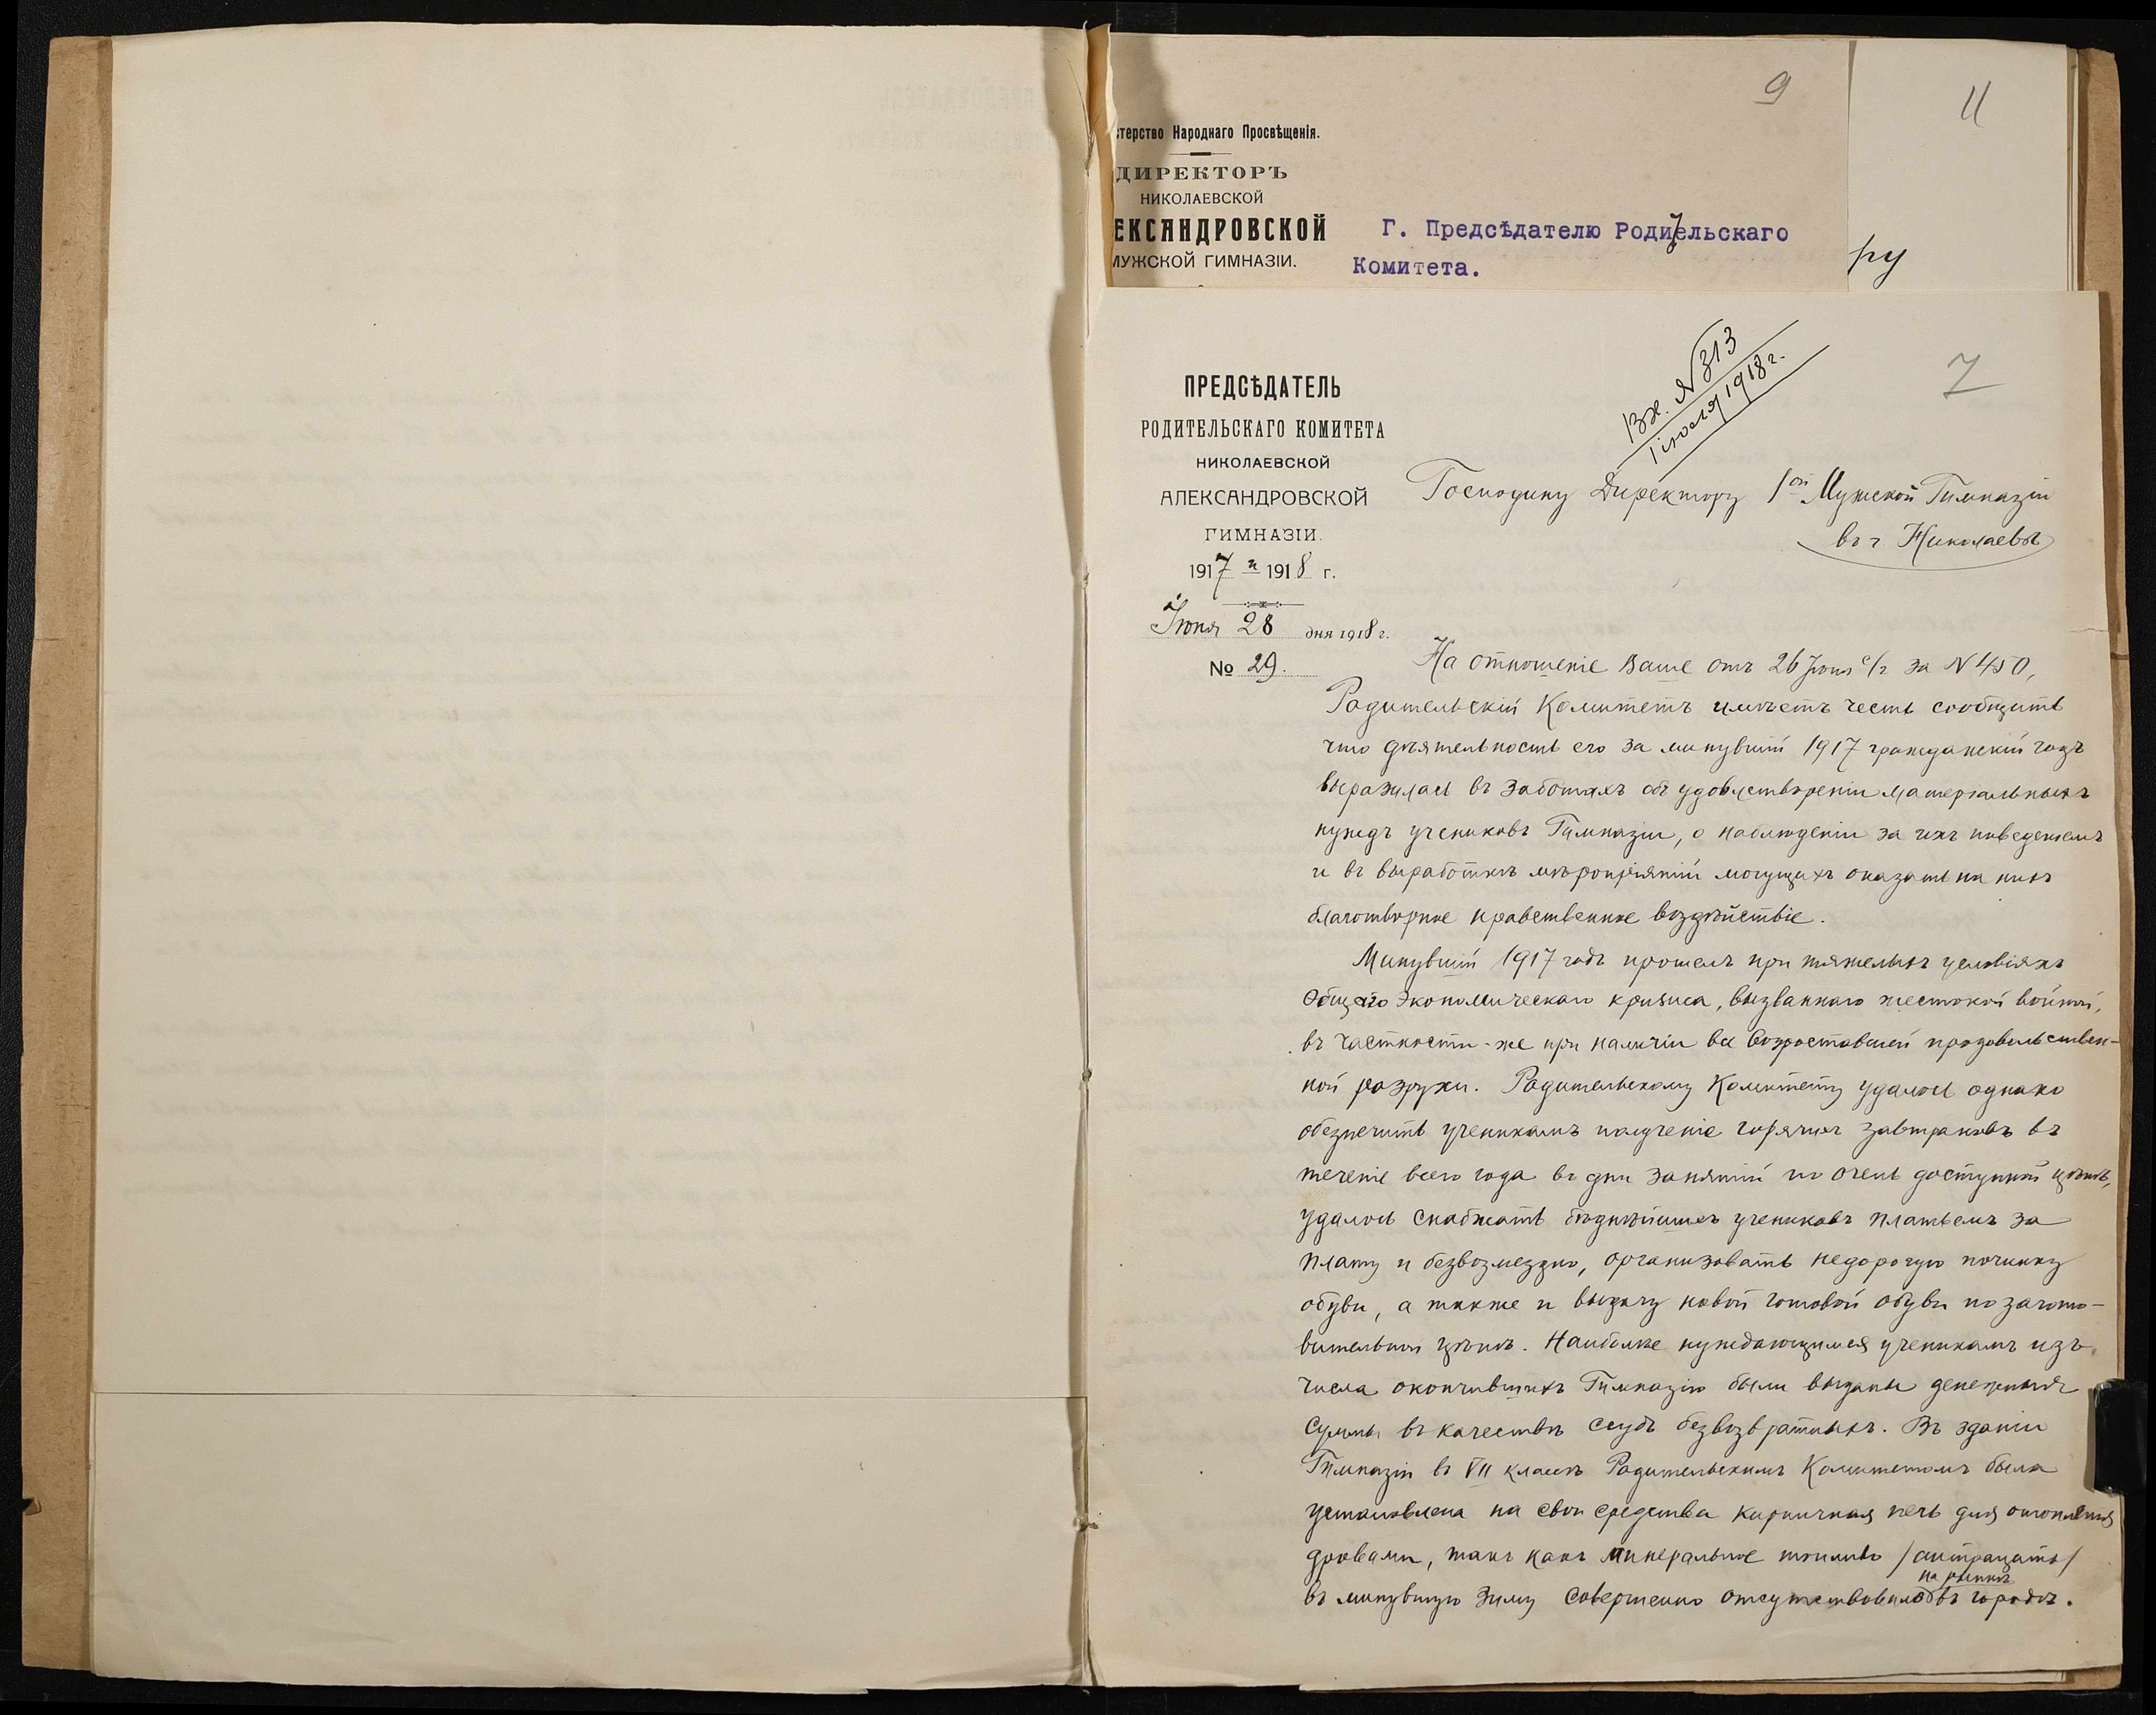 9
11
стерство Народнаго Просвѣщенія.
ДИРЕКТОРЪ
НИКОЛАЕВСКОЙ
ЕКСАНДРОВСКОЙ
МУЖСКОЙ ГИМНАЗІИ.
Г. Предсѣдателю Родительскаго
Комитета.
ру
Вх. N 313
1 іюля 1918 г.
7
ПРЕДСѢДАТЕЛЬ
РОДИТЕЛЬСКАГО КОМИТЕТА
НИКОЛАЕВСКОЙ
АЛЕКСАНДРОВСКОЙ
ГИМНАЗІИ.
1917 и 1918 г.
Іюня 28 дня 1918 г.
№ 29.
Господину Директору 1ой Мужской Гимназіи
въ г. Николаевѣ
На отношеніе Ваше отъ 26 Іюня с/г за N 450,
Родительскій Комитетъ имѣетъ честь сообщить
что дѣятельность его за минувшій 1917 гражданскій годъ
выразилась въ заботахъ объ удовлетвореніи матеріальныхъ
нуждъ учениковъ Гимназіи, о наблюденіи за ихъ поведеніемъ
и въ выработкѣ мѣропріятій могущихъ оказать на нихъ
благотворное нравственное воздѣйствіе.
Минувшій 1917 годъ прошелъ при тяжелыхъ условіяхъ
общаго экономическаго кризиса, вызваннаго жестокой войной,
въ частности-же при наличіи все возроставшей продовольствен-
ной разрухи. Родительскому Комитету удалось однако
обезпечить ученикамъ полученіе горячихъ завтраковъ въ
теченіе всего года въ дни занятій по очень доступной цѣнѣ,
удалось снабжать бѣднѣйшихъ учениковъ платьемъ за
плату и безвозмездно, организовать недорогую починку
обуви, а также и выдачу новой готовой обуви по загото-
вительной цѣнѣ. Наиболѣе нуждающимся ученикамъ изъ
числа окончившихъ Гимназію были выданы денежныя
суммы въ качествѣ ссудъ безвозвратныхъ. Въ зданіи
Гимназіи въ VII классѣ Родительскимъ Комитетомъ была
установлена на свои средства кирпичная печь для отопленія
дровами, такъ какъ минеральное топливо /антрацитъ/
въ минувшую зиму совершенно отсутствовало въ городѣ.
на рынкѣ